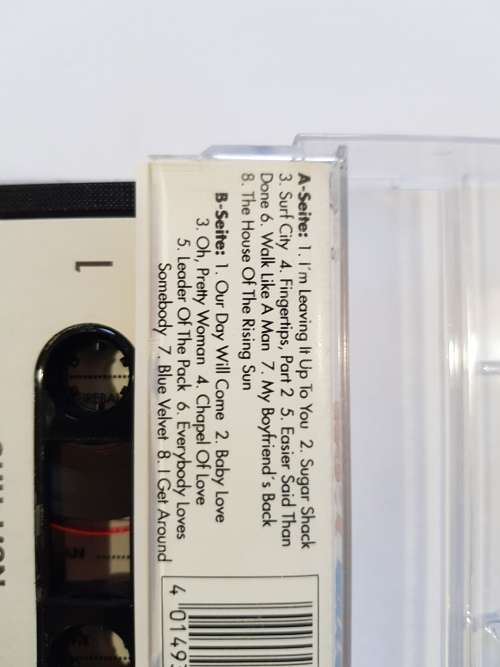 A-Seite: 1. I'm Leaving It Up To You 2. Sugar Shack
3. Surf City 4. Fingertips, Part 2 5. Easier Said Than
Done 6. Walk Like A Man 7. My Boyfriend's Back
8. The House Of The Rising Sun
B-Seite: 1. Our Day Will Come 2. Baby Love
3. Oh, Pretty Woman 4. Chapel Of Love
5. Leader Of The Pack 6. Everybody Loves
Somebody 7. Blue Velvet 8. I Get Around
4 0149
1